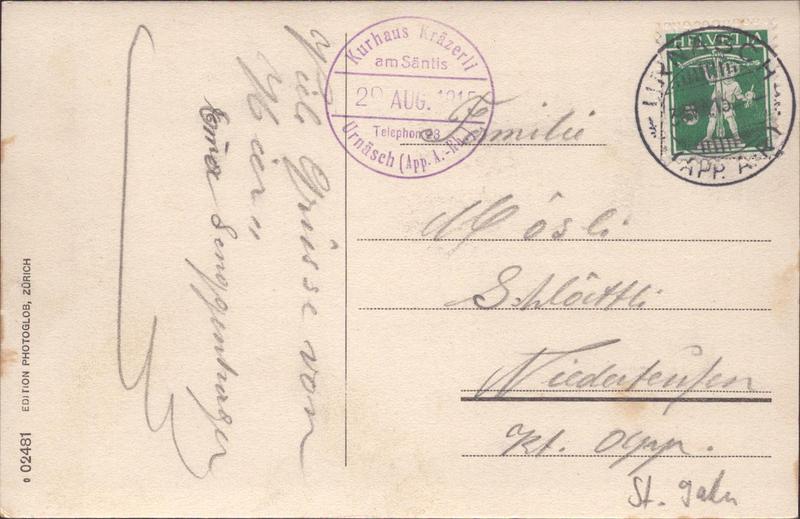 Kurhaus Kräzerli
am Säntis
29 AUG. 1915
Telephon 28
Urnäsch (App. A.-Rh.)
HELVETIA
URNÄSCH
(APP. A.RH.)
Viele Grüsse von
Hier"
Emma Senggenhager
Familie
Mösli
Schlättli
Niederteufen
Kt. App.
St. Galn
EDITION PHOTOGLOB, ZÜRICH
02481